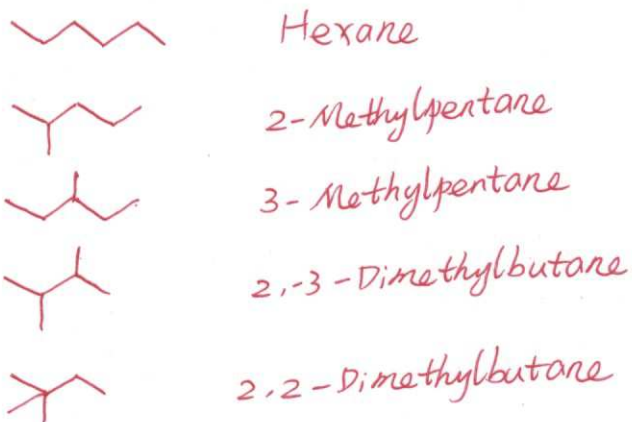 Hexane
2-Methylpentane
3-Methylpentane
2,-3-Dimethylbutane
2,2-Dimethylbutane